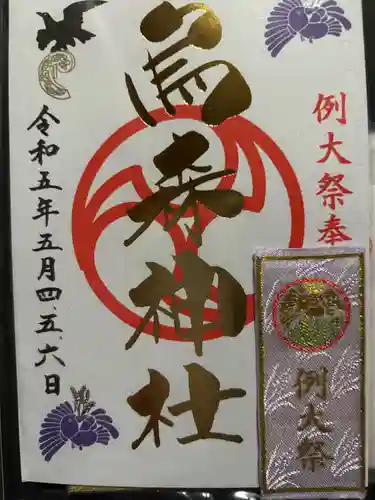 例大祭奉
烏森神社
令和五年五月四、五、六日
例大祭